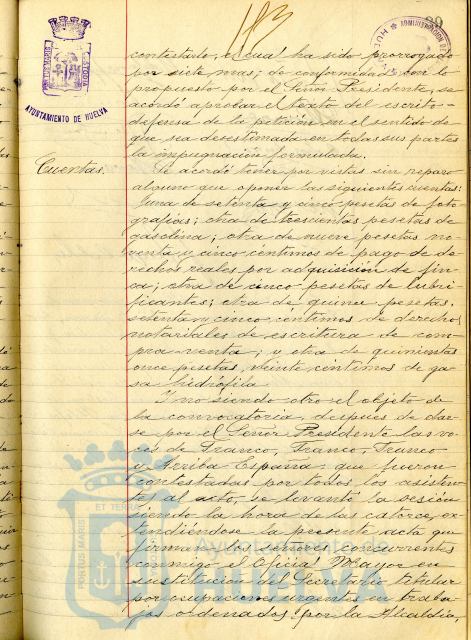 183
39
ADMINISTRACION DE
HU
PORTUS MARIS
CUSTODIA
AYUNTAMIENTO DE HUELVA
contestarlo, el cual ha sido prorrogado
por siete mas; de conformidad con lo
propuesto por el Señor Presidente, se
acordó aprobar el texto del escrito-
defensa de la petición en el sentido de
que sea desestimada en todas sus partes
la impugnación formulada.
Cuentas.
Se acordó tener por vistas sin reparo
alguno que oponer las siguientes cuentas:
una de setenta y cinco pesetas de foto-
grafías; otra de trescientas pesetas de
gasolina; otra de nueve pesetas no-
venta y cinco céntimos de pago de de-
rechos reales por adquisición de fin-
ca; otra de cinco pesetas de lubri-
ficantes; otra de quince pesetas,
setenta y cinco céntimos de derechos
notariales de escritura de com-
pra-venta; y otra de quinientas
once pesetas, veinte céntimos de ga-
sa hidrófila.
Y no siendo otro el objeto de
la convocatoria, despues de dar-
se por el Señor Presidente las vo-
ces de Franco, Franco, Franco
y Arriba España que fueron
contestadas por todos los asisten-
tes al acto, se levantó la sesión
siendo la hora de las catorce, ex-
tendiéndose la presente acta que
firman los señores concurrentes
conmigo el Oficial Mayor en
sustitución del Secretario titular
por ocupaciones urgentes en traba-
jos ordenados por la Alcaldía,
ET TERRAE
PORTUS MARIS
Ayuntamiento de
HUELVA